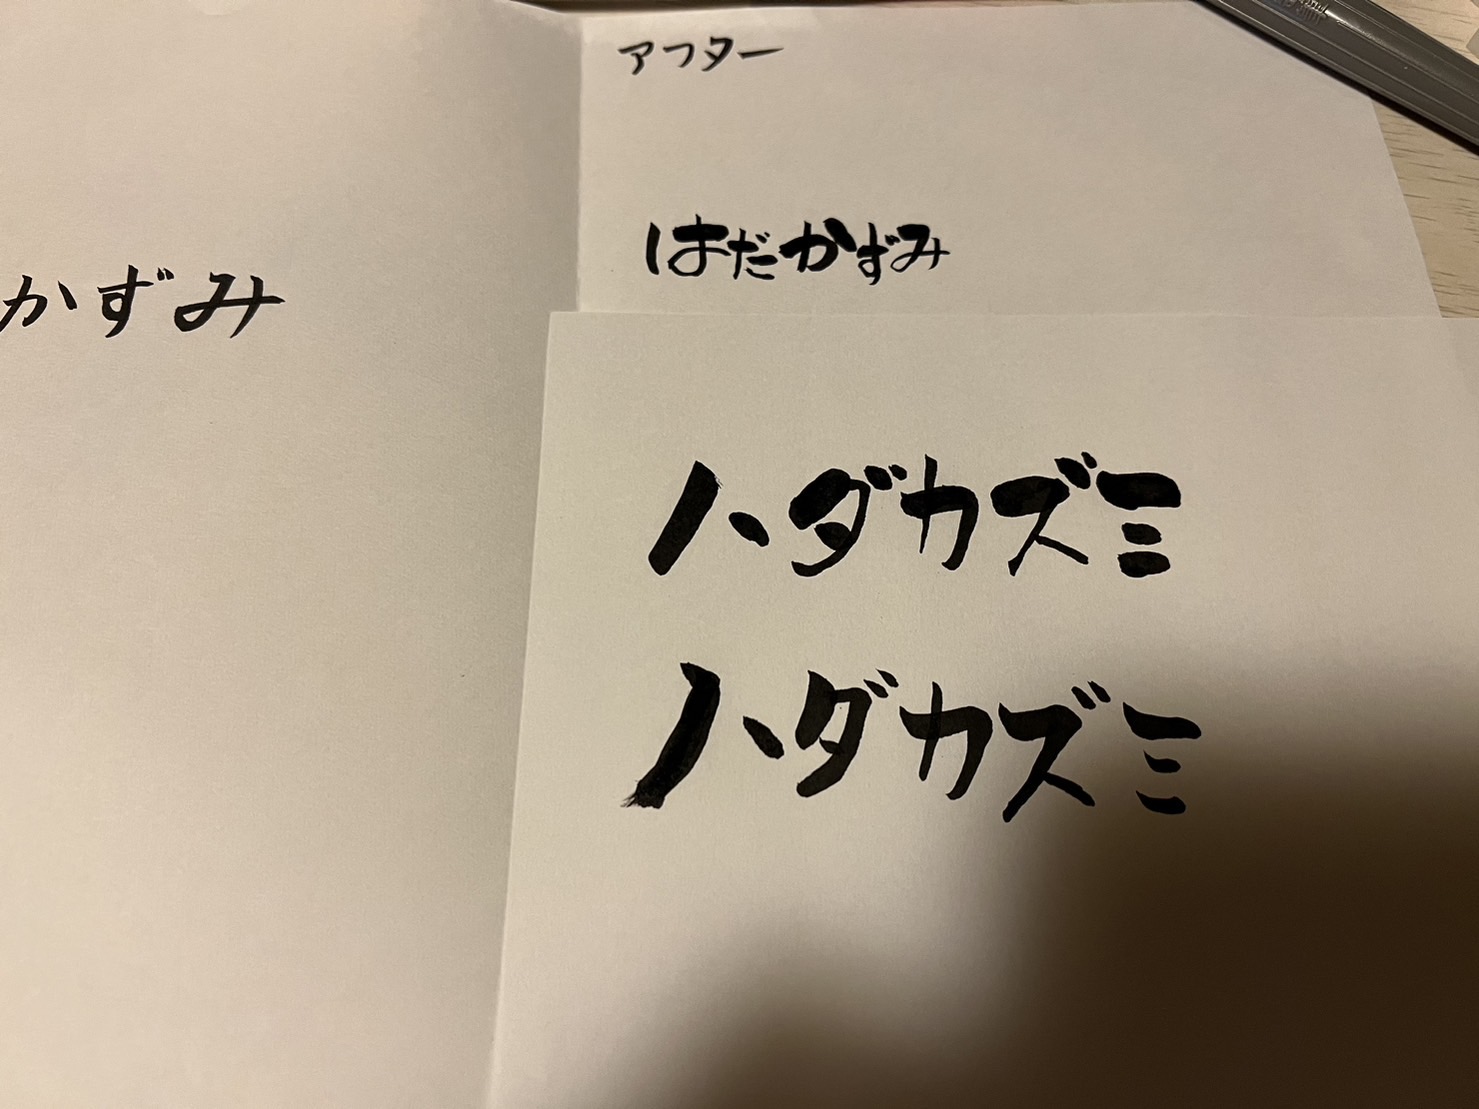 アフター
はだかずみ
かずみ
ハダカズミ
ハダカズミ